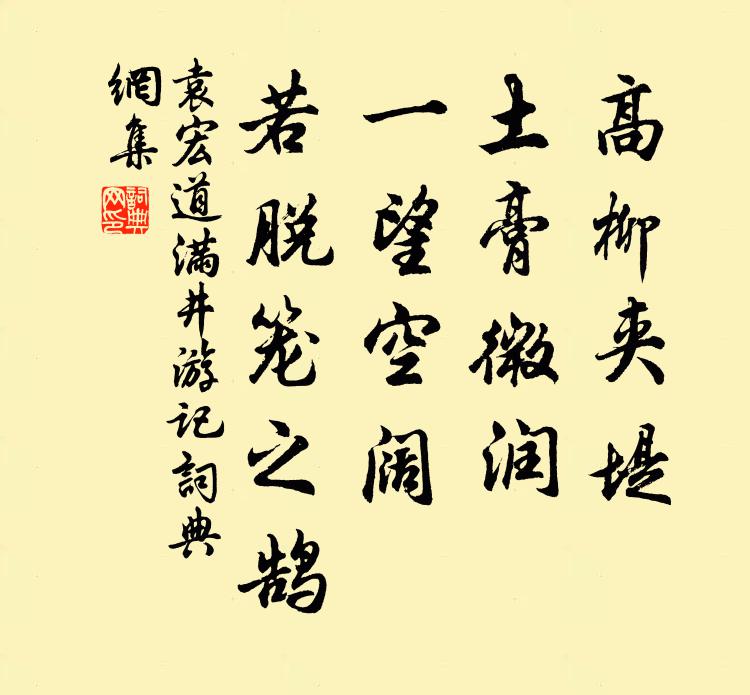 高柳夹堤
土膏微润
一望空阔
若脱笼之鹄
袁宏道满井游记詞典
網集
詞典
网印